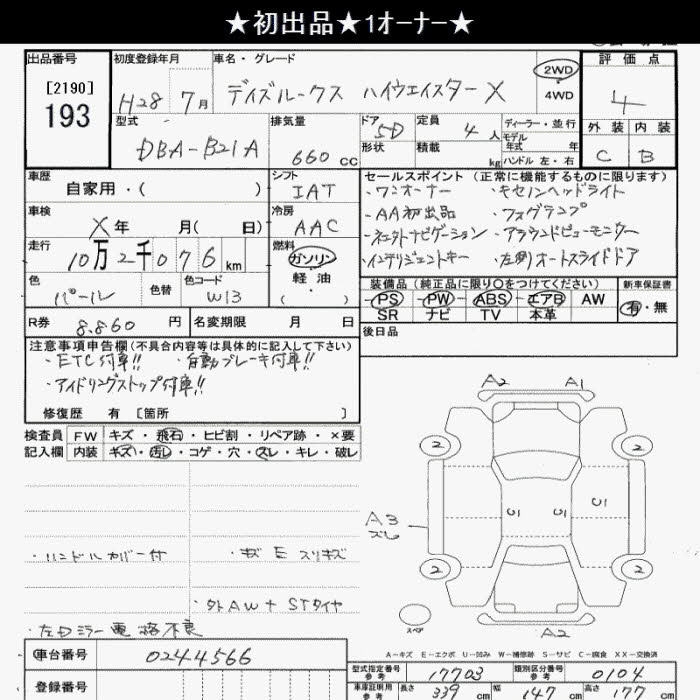 ★初出品★1オーナー★
出品番号 初度登録年月 車名・グレード 評価点
[2190]
193
H28 7月 デイズルークス ハイウェイスターX 2WD 4WD 4
型式 排気量 ドア 5D 定員 4人 ディーラー・並行 外装 内装
DBA-B21A 660cc 形状 積載 kg モデル年式 年 ハンドル 左・右 C B
車歴 シフト セールスポイント (正常に機能するものに限ります)
自家用・( ) IAT ・ワンオーナー ・キセノンヘッドライト
車検 冷房 ・AA初出品 ・フォグランプ
X年 月( 日) AAC ・ネエトナビゲーション ・アラウンドビューモニター
走行 燃料 ・インテリジェントキー ・左側オートスライドドア
10万2千076km ガソリン
色 色替 色コード 軽油 装備品 (純正品に限り○をつけてください) 新車保証書
パール W13 ( ・ ) PS PW ABS エアB AW 有・無
SR ナビ TV 本革
R券 8,860円 名変期限 月 日 後日品
注意事項申告欄(不具合内容等は具体的に記入して下さい)
・ETC付車!! ・自動ブレーキ付車!!
・アイドリングストップ付車!!
修復歴 有 [箇所 ]
検査員 FW キズ・飛石・ヒビ割・リペア跡・×要
記入欄 内装 キズ・汚レ・コゲ・穴・スレ・キレ・破レ
A2 A1
2 2
A3
ズレ
・ハンドルカバー付 ・キズ E スリキズ
2 2
外AW+STタイヤ
スペア
・左Dミラー電格不良 A2
A-キズ E-エクボ U-凹み W-補修跡 S-サビ C-腐食 XX-交換済
車台番号 0244566
型式指定番号 参考 17703 類別区分番号 参考 0104
登録番号 車庫証明用 参考 長さ 339cm 幅 147cm 高さ 177cm